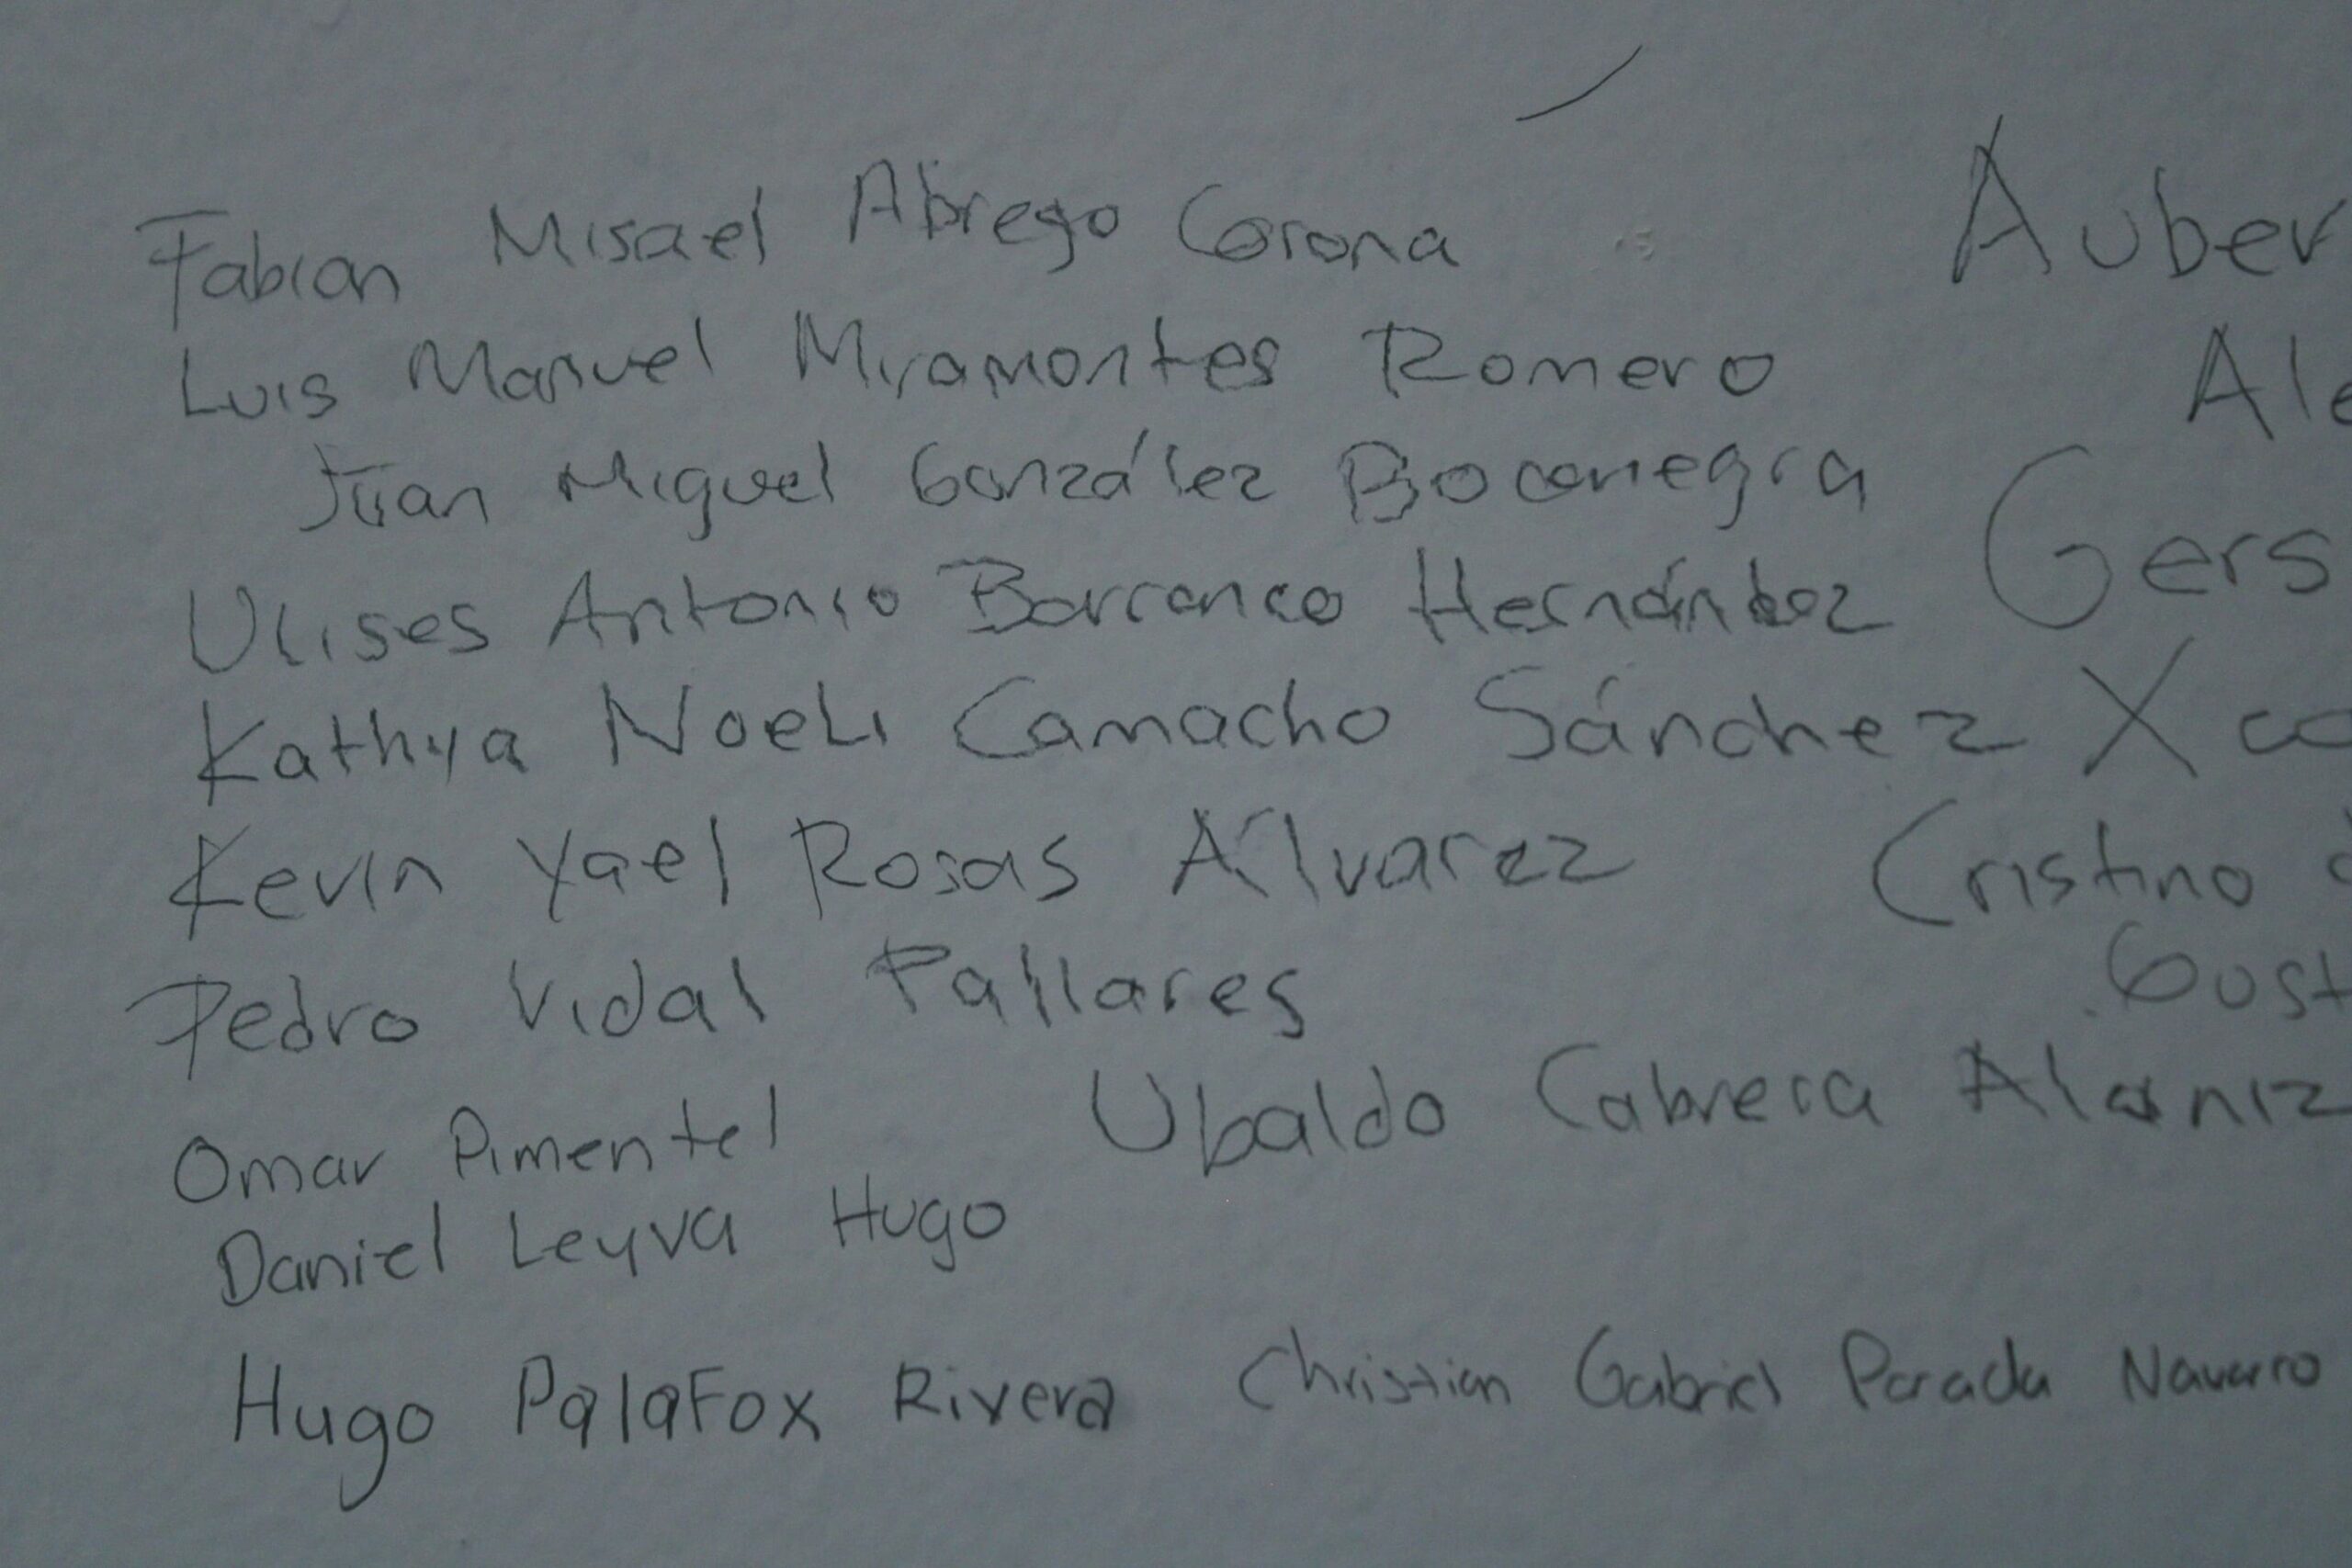 Fabian Misael Abrego Corona
Luis Manuel Miramontes Romero
Juan Miguel González Bocanegra
Ulises Antonio Barranco Hernández
Kathya Noeli Camacho Sánchez
Kevin Yael Rosas Álvarez
Pedro Vidal Pallares
Omar Pimentel
Ubaldo Cabrera Alaniz
Daniel Leyva Hugo
Hugo Palafox Rivera
Christian Gabriel Parada Navarro
Auber
Ale
Gers
Cristino
Gust